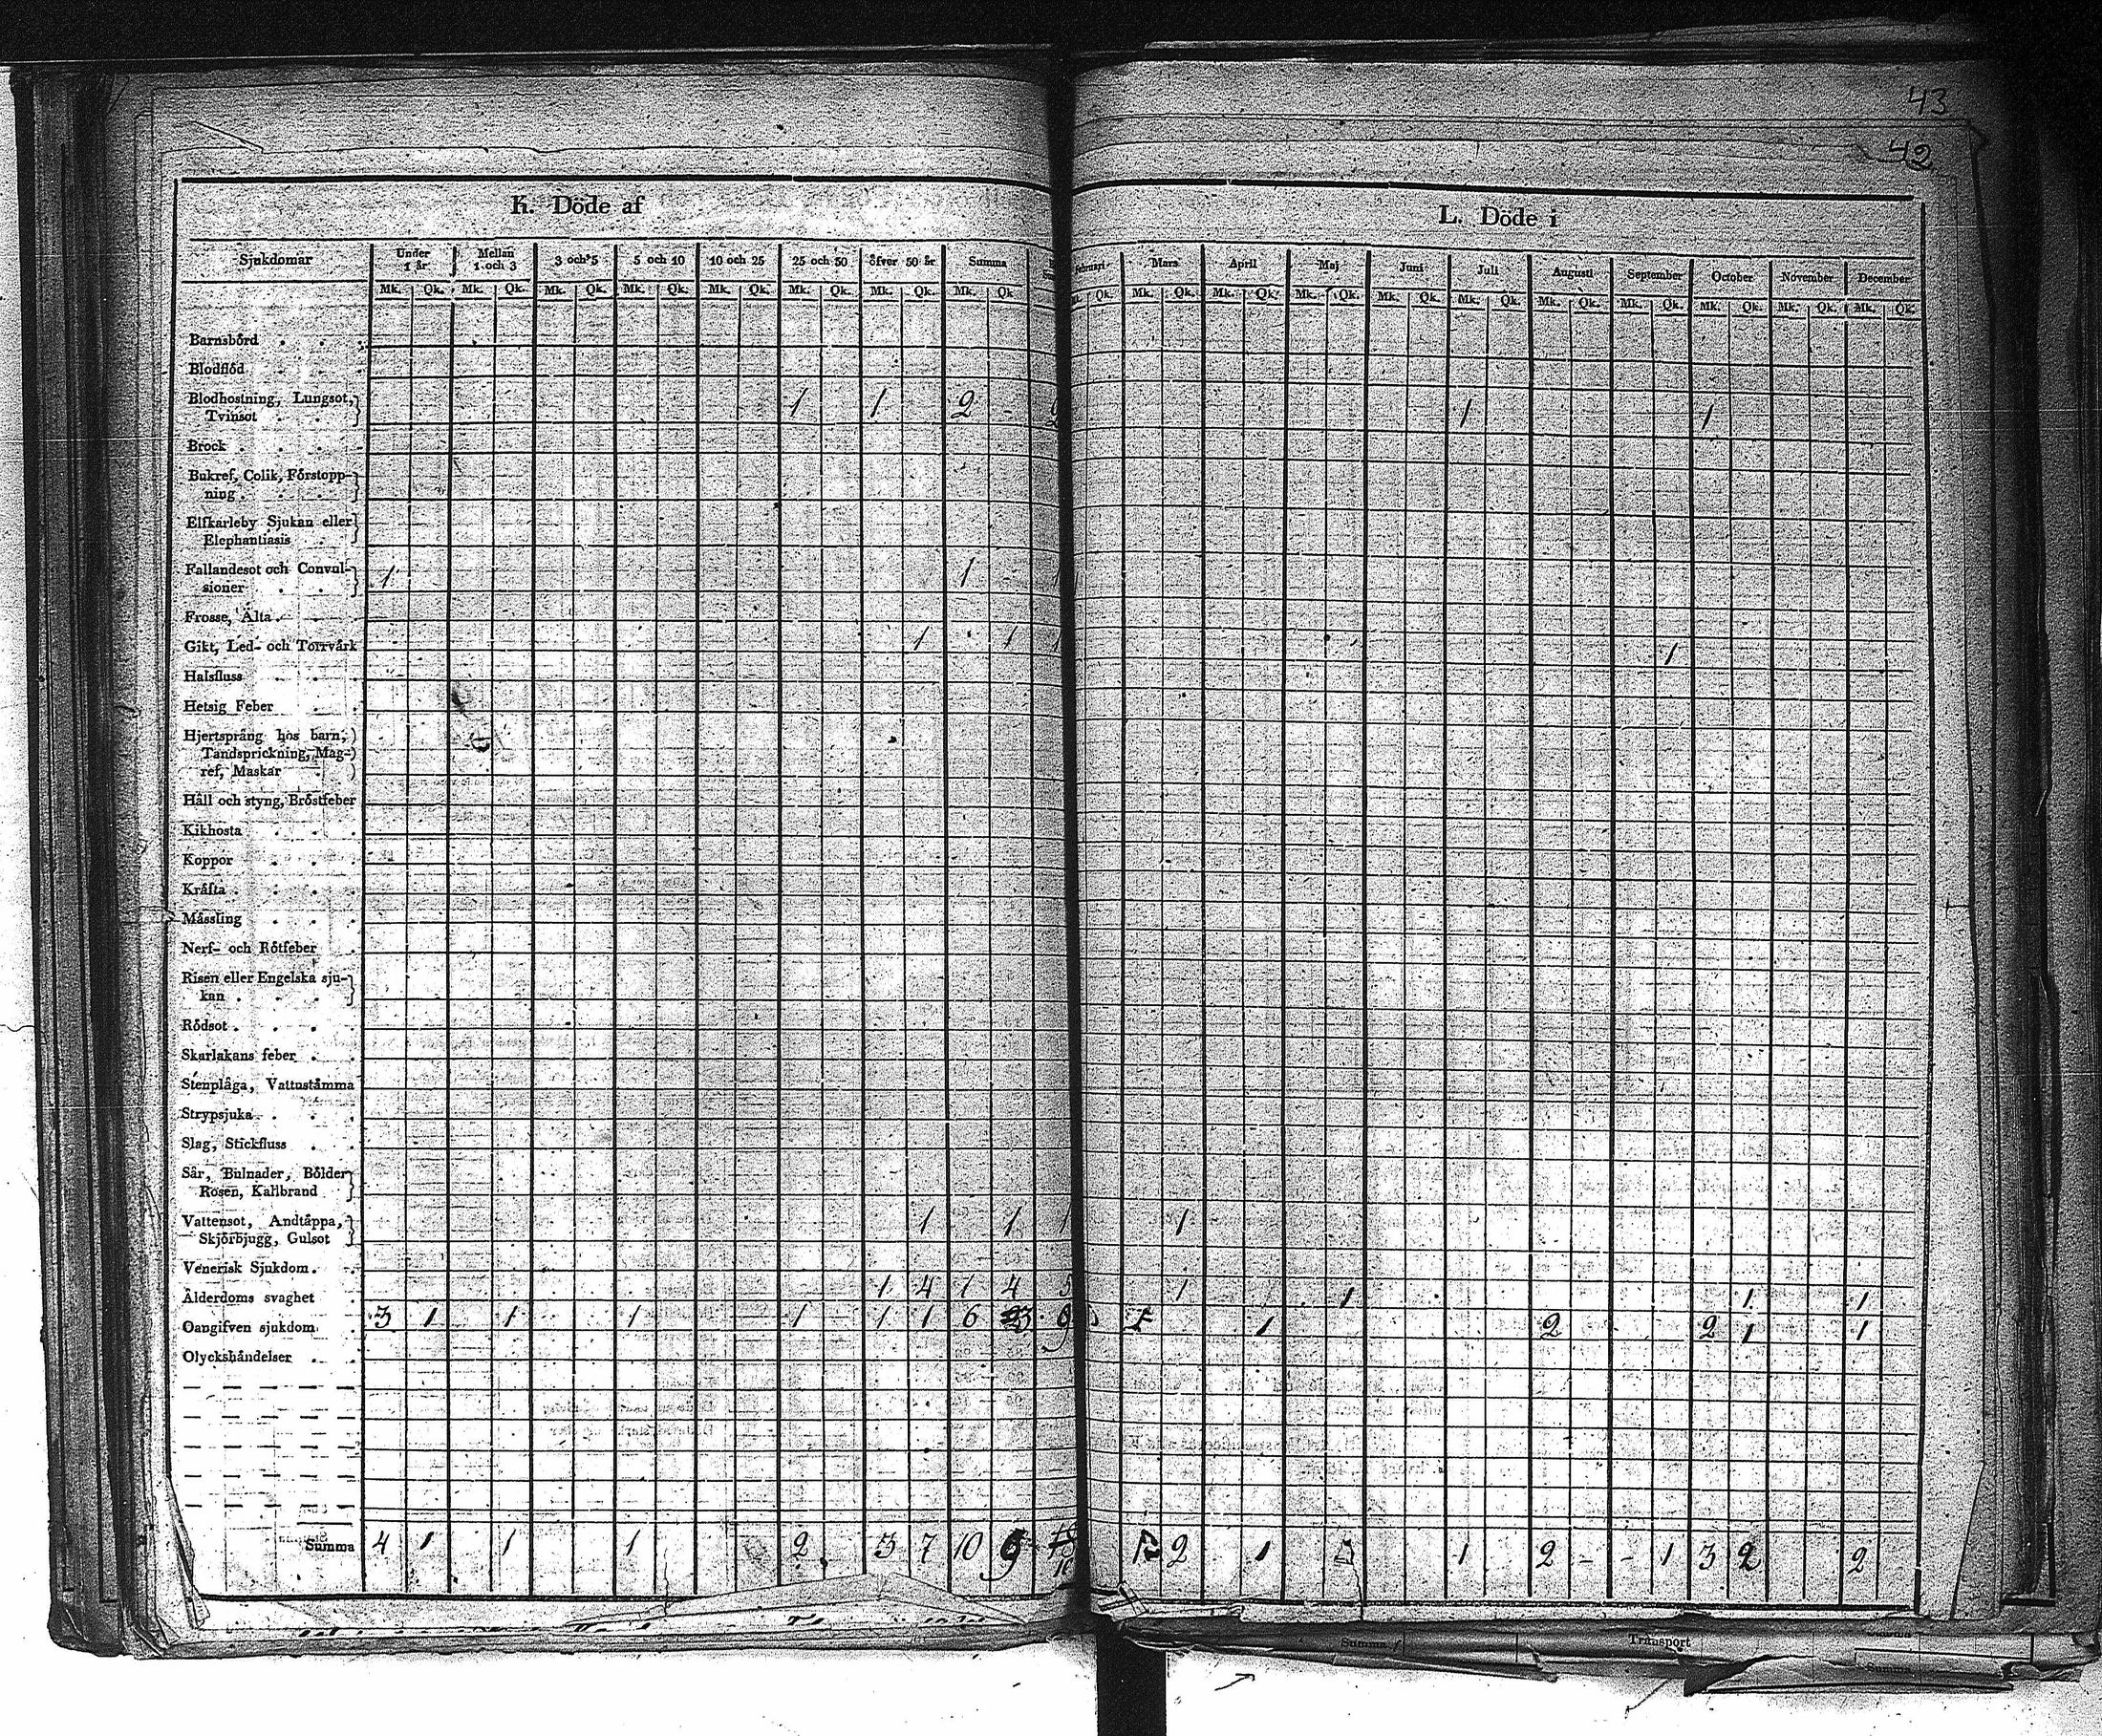 43
42
K. Döde af
L. Döde i
Sjukdomar Under 1 år Mellan 1 och 3 3 och 5 5 och 10 10 och 25 25 och 50 öfver 50 år Summa
Mars April Maj Juni Juli Augusti September October November December
Mk. Qk. Mk. Qk. Mk. Qk. Mk. Qk. Mk. Qk. Mk. Qk. Mk. Qk. Mk. Qk
Qk. Mk. Qk. Mk. Qk. Mk. Qk. Mk. Qk. Mk. Qk. Mk. Qk. Mk. Qk. Mk. Qk. Mk. Qk. Mk. Qk.
Barnsbörd
Blodflöd
Blodhostning, Lungsot,
Tvinsot 1 1 2 1 1
Brock
Bukref, Colik, Förstopp-
ning
Elfkarleby Sjukan eller
Elephantiasis
Fallandesot och Convul-
sioner 1 1
Frosse, Älta
Gikt, Led- och Torrvärk 1 1 1 1
Halsfluss
Hetsig Feber
Hjertsprång hos barn,
Tandsprickning, Mag-
ref, Maskar
Håll och styng, Bröstfeber
Kikhosta
Koppor
Kräfta
Mässling
Nerf- och Rötfeber
Risen eller Engelska sju-
kan
Rödsot
Skarlakans feber
Stenplåga, Vattustämma
Strypsjuka
Slag, Stickfluss
Sår, Bulnader, Bölder
Rosen, Kallbrand
Vattensot, Andtäppa,
Skjörbjugg, Gulsot 1 1 1 1
Venerisk Sjukdom
Ålderdoms svaghet 1 4 1 4 5 1 1 1 1
Oangifven sjukdom 3 1 1 1 1 1 1 6 3 9 1 2 2 1 1
Olyckshändelser
Summa 4 1 1 1 2 3 7 10 2 1 1 2 - - 1 3 2 2
Summa
Transport
Summa